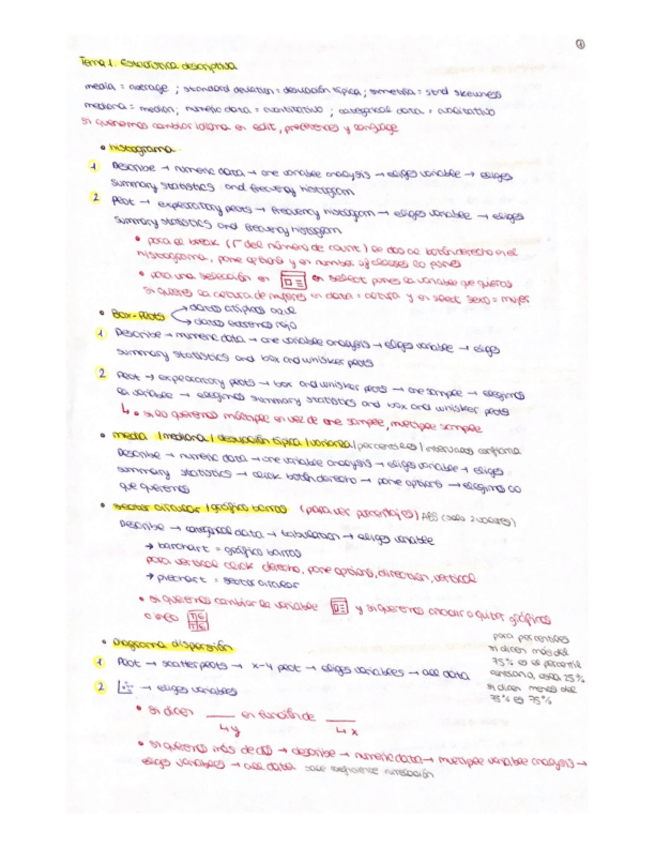 ①
Tema 1. Estadística descriptiva
media = average ; standard deviation = desviación típica ; simetría = stnd skewness
mediana = median ; numeric data = cuantitativo ; categorical data = cualitativo
si queremos cambiar idioma en edit, preferences y language
• histograma
1 Describe → numeric data → one variable analysis → eliges variable → eliges
summary statistics and frecuency histogram
2 Plot → exploratory plots → frecuency histogram → eliges variable → eliges
summary statistics and frecuency histogram
• para el break (r del número de count) le das al botón derecho en el
histograma, pane options y en number of classes lo pones
• para una selección en en select pones la variable que quieras
si quieres la altura de mujeres en data = altura y en select sexo = mujer
• Box-Plots → datos atípicos azul
→ datos extremos rojo
1 Describe → numeric data → one variable analysis → eliges variable → eliges
summary statistics and box and whisker plots
2 Plot → exploratory plots → box and whisker plots → one sample → elegimos
la variable → elegimos summary statistics and box and whisker plots
↳ • si lo queremos múltiple en vez de one sample, multiple sample
• media / mediana / desviación típica / varianza / percentiles / intervalos confianza
Describe → numeric data → one variable analysis → eliges variable → eliges
summary statistics → click botón derecho → pane options → elegimos lo
que queremos
• sector circular / gráfico barras (para ver porcentajes) ABS (solo 2 valores)
Describe → categorical data → tabulation → eliges variable
→ barchart = gráfico barras
para vertical click derecho, pane options, dirección, vertical
→ piechart = sector circular
• si queremos cambiar la variable y si queremos añadir o quitar gráficos
o info
• Diagrama dispersión
1 Plot → scatterplots → x-y plot → eliges variables → all data
2 → eliges variables
• si dicen ____ en función de ____
↳ y ↳ x
• si queremos más de dos → describe → numeric data → multiple variable analysis →
eliges variables → all data
para percentiles
si dicen más del
75% es el percentil
contrario, osea 25%
si dicen menos del
75% es 75%